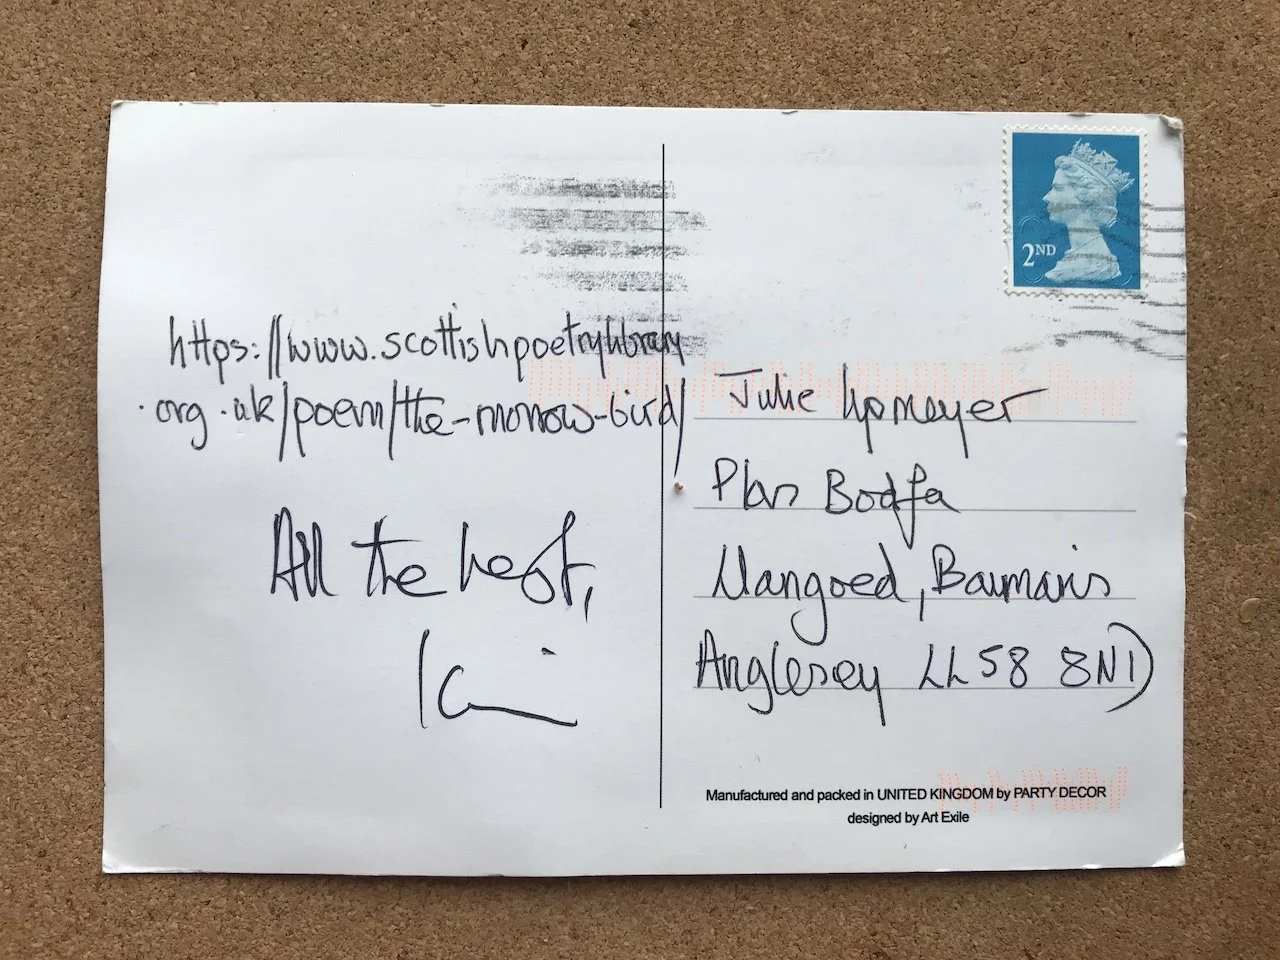 https://www.scottishpoetrylibrary
.org.uk/poem/the-morrow-bird/
All the best,
2ND
Julie Upmeyer
Plas Bodfa
Llangoed, Beaumaris
Anglesey LL58 8ND
Manufactured and packed in UNITED KINGDOM by PARTY DECOR
designed by Art Exile